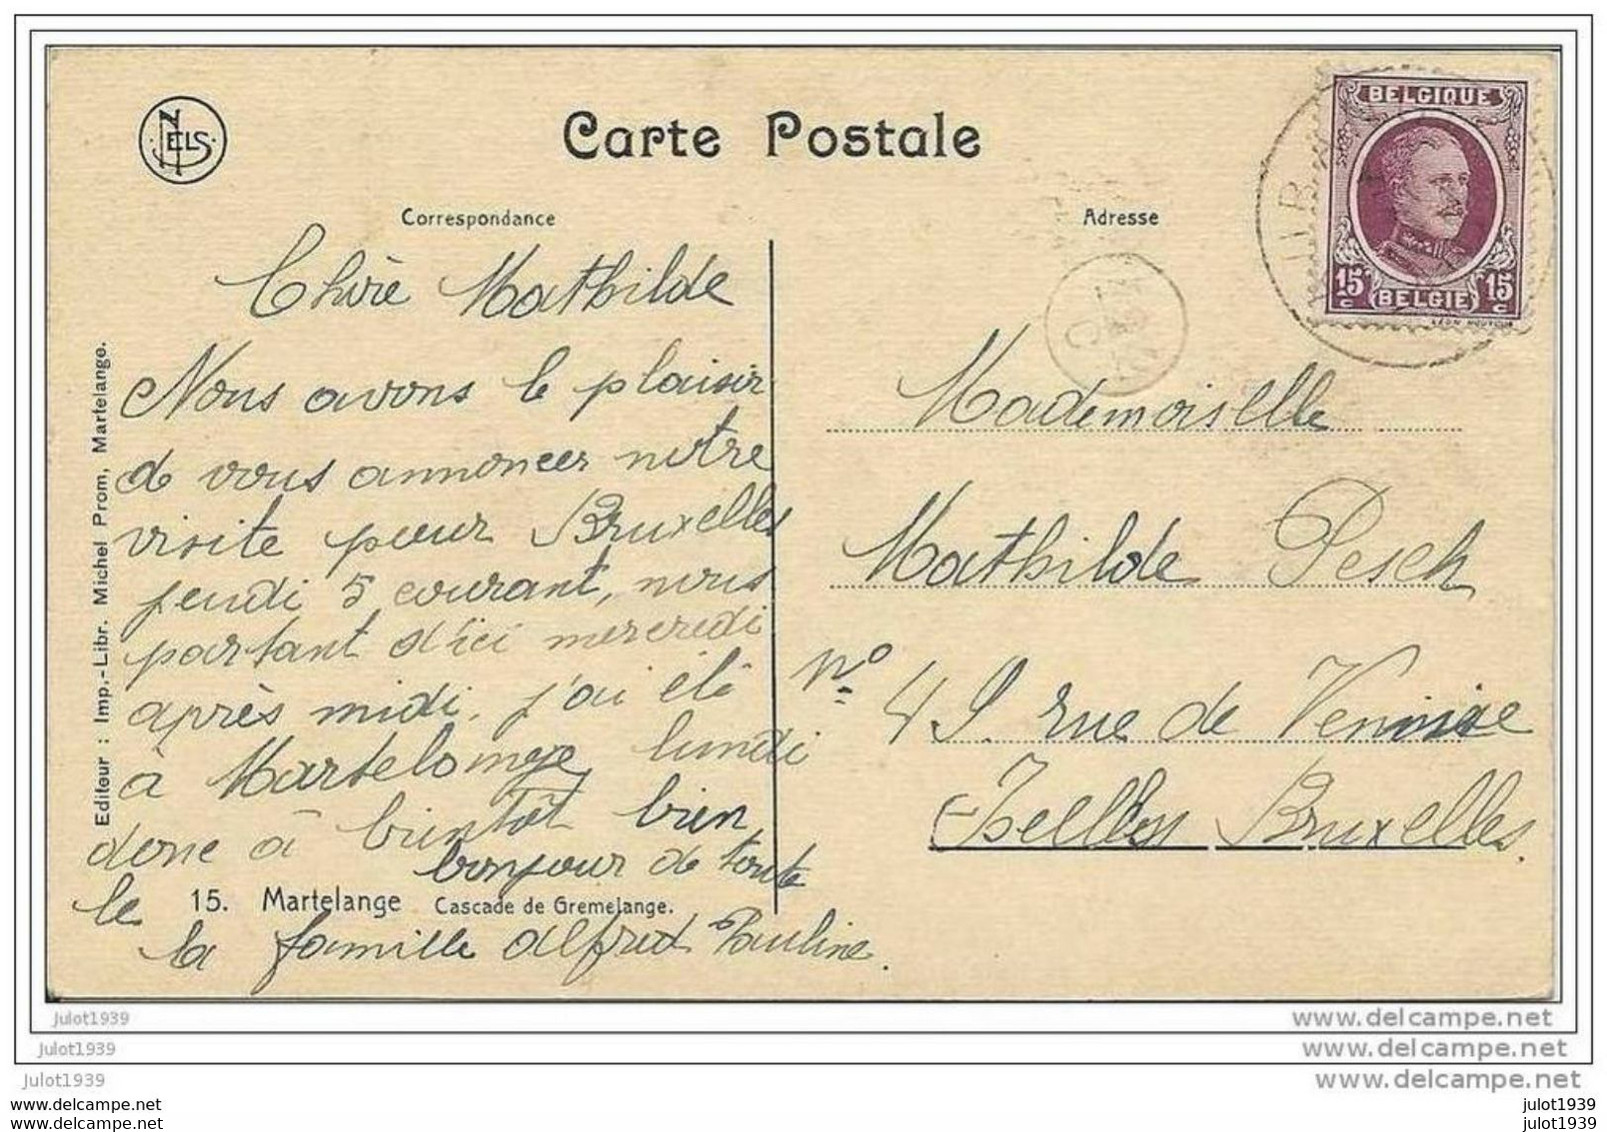 NELS
Carte Postale
BELGIQUE
15 c BELGIE 15 c
Correspondance
Adresse
Chère Mathilde
Nous avons le plaisir
de vous annoncer notre
visite pour Bruxelles
jeudi 5 courant, nous
partant d'ici mercredi
après midi, j'ai été
à Martelange lundi
donc à bientôt bien
bonjour de toute
le
la famille alfred Pauline.
15. Martelange Cascade de Gremelange.
Editeur : Imp.-Libr. Michel Prom, Martelange.
Mademoiselle
Mathilde Pesch
No 49 rue de Venise
Ixelles Bruxelles.
julot1939
www.delcampe.net
julot1939
www.delcampe.net
julot1939
www.delcampe.net
www.delcampe.com
julot1939
www.delcampe.com
julot1939